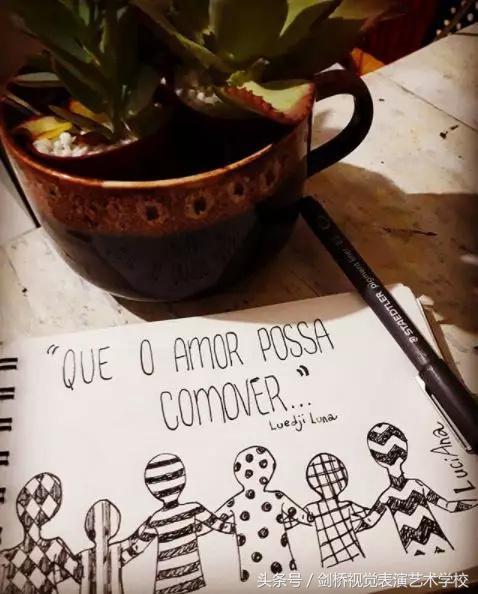 "QUE O AMOR POSSA
COMOVER..."
Luedji Luna
STAEDTLER pigment liner
LuciAna
头条号 / 剑桥视觉表演艺术学校